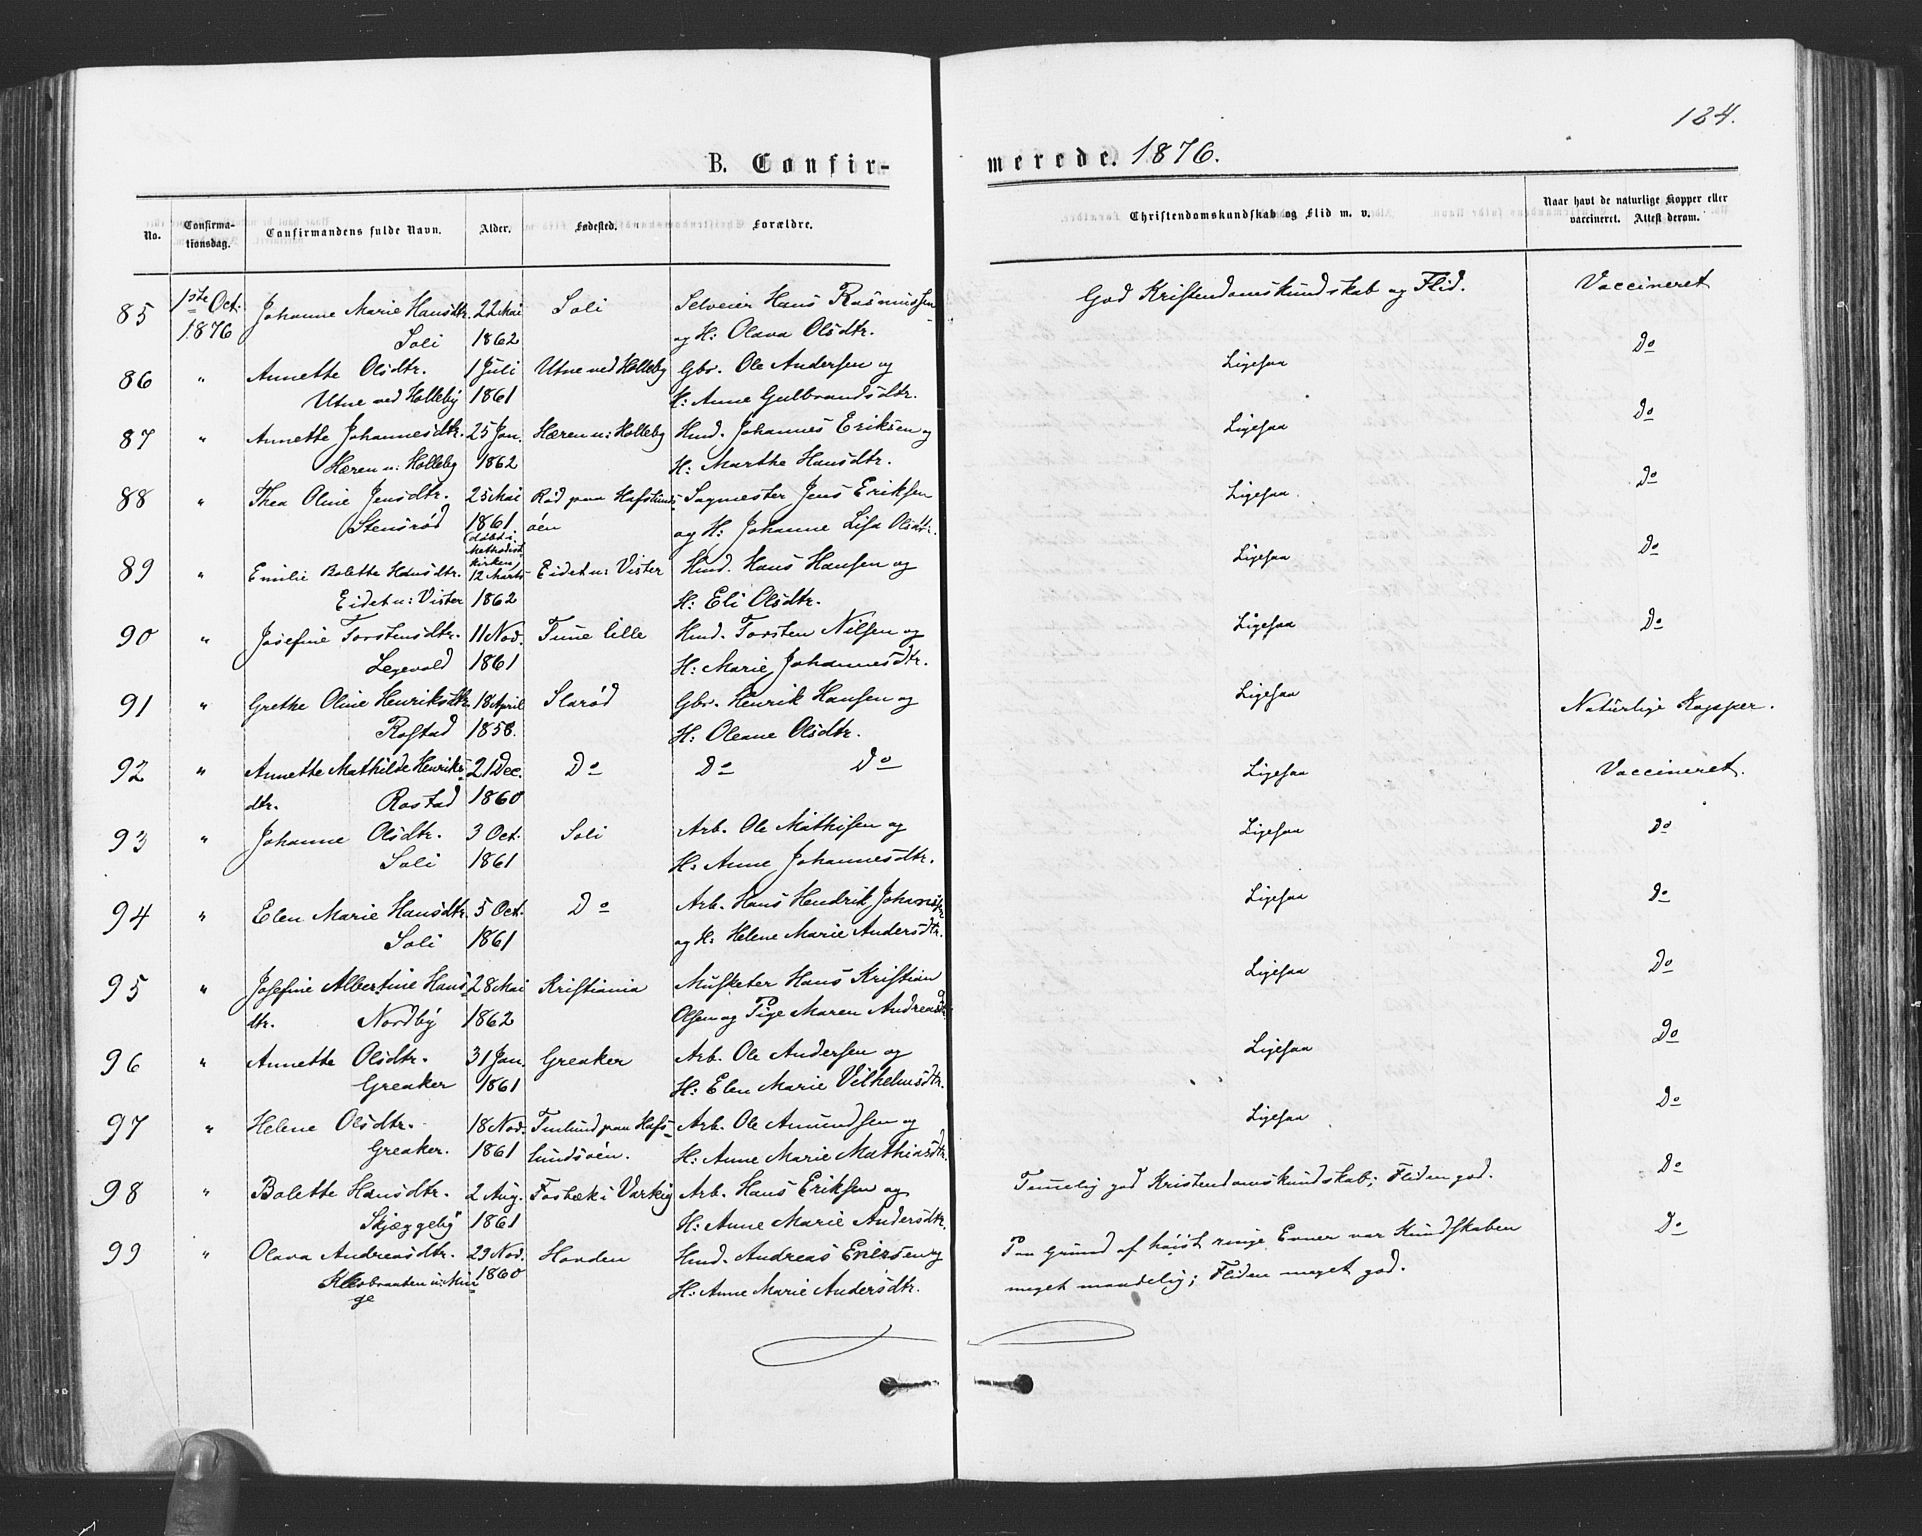 184.
B. Confirmerede. 1876.
No. Confirmationsdag. Confirmandens fulde Navn. Alder. Fødested. Forældre. Christendomskundskab og Flid m. v. Naar havt de naturlige Kopper eller vaccineret. Attest derom.
85 1ste Oct. Johanne Marie Hansdtr. 22 Mai Soli Selveier Hans Rasmussen God Kristendomskundskab og Flid. Vaccineret
1876 Soli 1862 og H: Olava Olsdtr.
86 " Annette Olsdtr. 1 Juli Utne ved Holleby Gbr. Ole Andersen og Ligesaa Do
Utne ved Holleby 1861 H: Anne Gulbrandsdtr.
87 " Annette Johannesdtr. 25 Jan. Hæren u: Holleby Hmd. Johannes Eriksen og Ligesaa Do
Hæren u: Holleby 1862 H: Marthe Hansdtr.
88 " Thea Oline Jensdtr. 25 Mai Rød paa Hafslunds Sagmester Jens Eriksen Ligesaa Do
Stensrød 1861 øen og H: Johanne Lisa Olsdtr.
(døbt i
Methodist
kirken)
89 " Emilie Bolette Hansdtr. 12 Marts Eidet u: Vister Hmd. Hans Hansen og Ligesaa Do
Eidet u: Vister 1862 H: Eli Olsdtr.
90 " Josefine Torstensdtr. 11 Nov. Tune lille Hmd. Torsten Nilsen og Ligesaa Do
Legevold 1861 H: Marie Johannesdtr.
91 " Grethe Oline Henriksdtr. 18 April Slarød Gbr. Henrik Hansen og Ligesaa Naturlige Kopper.
Rostad 1858. H: Oleane Olsdtr.
92 " Annette Mathilde Henriks- 21 Dec. Do Do Do Ligesaa Vaccineret.
dtr. Rostad 1860
93 " Johanne Olsdtr. 3 Oct. Soli Arb. Ole Mathisen og Ligesaa Do
Soli 1861 H: Anne Johannesdtr.
94 " Elen Marie Hansdtr. 5 Oct. Do Arb. Hans Hendrik Ligesaa Do
Soli 1861 og H: Helene Marie Andersdtr.
95 " Josefine Albertine Hans- 28 Mai Kristiania Musketer Hans Kristian Ligesaa Do
dtr. Nordby 1862 Olsen og Pige Maren Andreasdtr.
96 " Annette Olsdtr. 31 Jan. Greaker Arb. Ole Andersen og Ligesaa Do
Greaker 1861 H: Elen Marie Vilhelmsdtr.
97 " Helene Olsdtr. 18 Nov. Tunlund paa Hafs- Arb. Ole Amundsen og Ligesaa Do
Greaker. 1861 lundsøen. H: Anne Marie Mathiasdtr.
98 " Bolette Hansdtr. 2 Aug. Fosbæk i Varteig Arb. Hans Eriksen og Temmelig god Kristendomskundskab; Fliden god. Do
Skjæggeby 1861 H: Anne Marie Andersdtr.
99 " Olava Andreasdtr. 29 Nov. Hovden Hmd. Andreas og Paa Grund af høist ringe Evner var Kundskaben Do
u: Min 1860 H: Anne Marie Andersdtr. meget maadelig; Fliden meget god.
ge